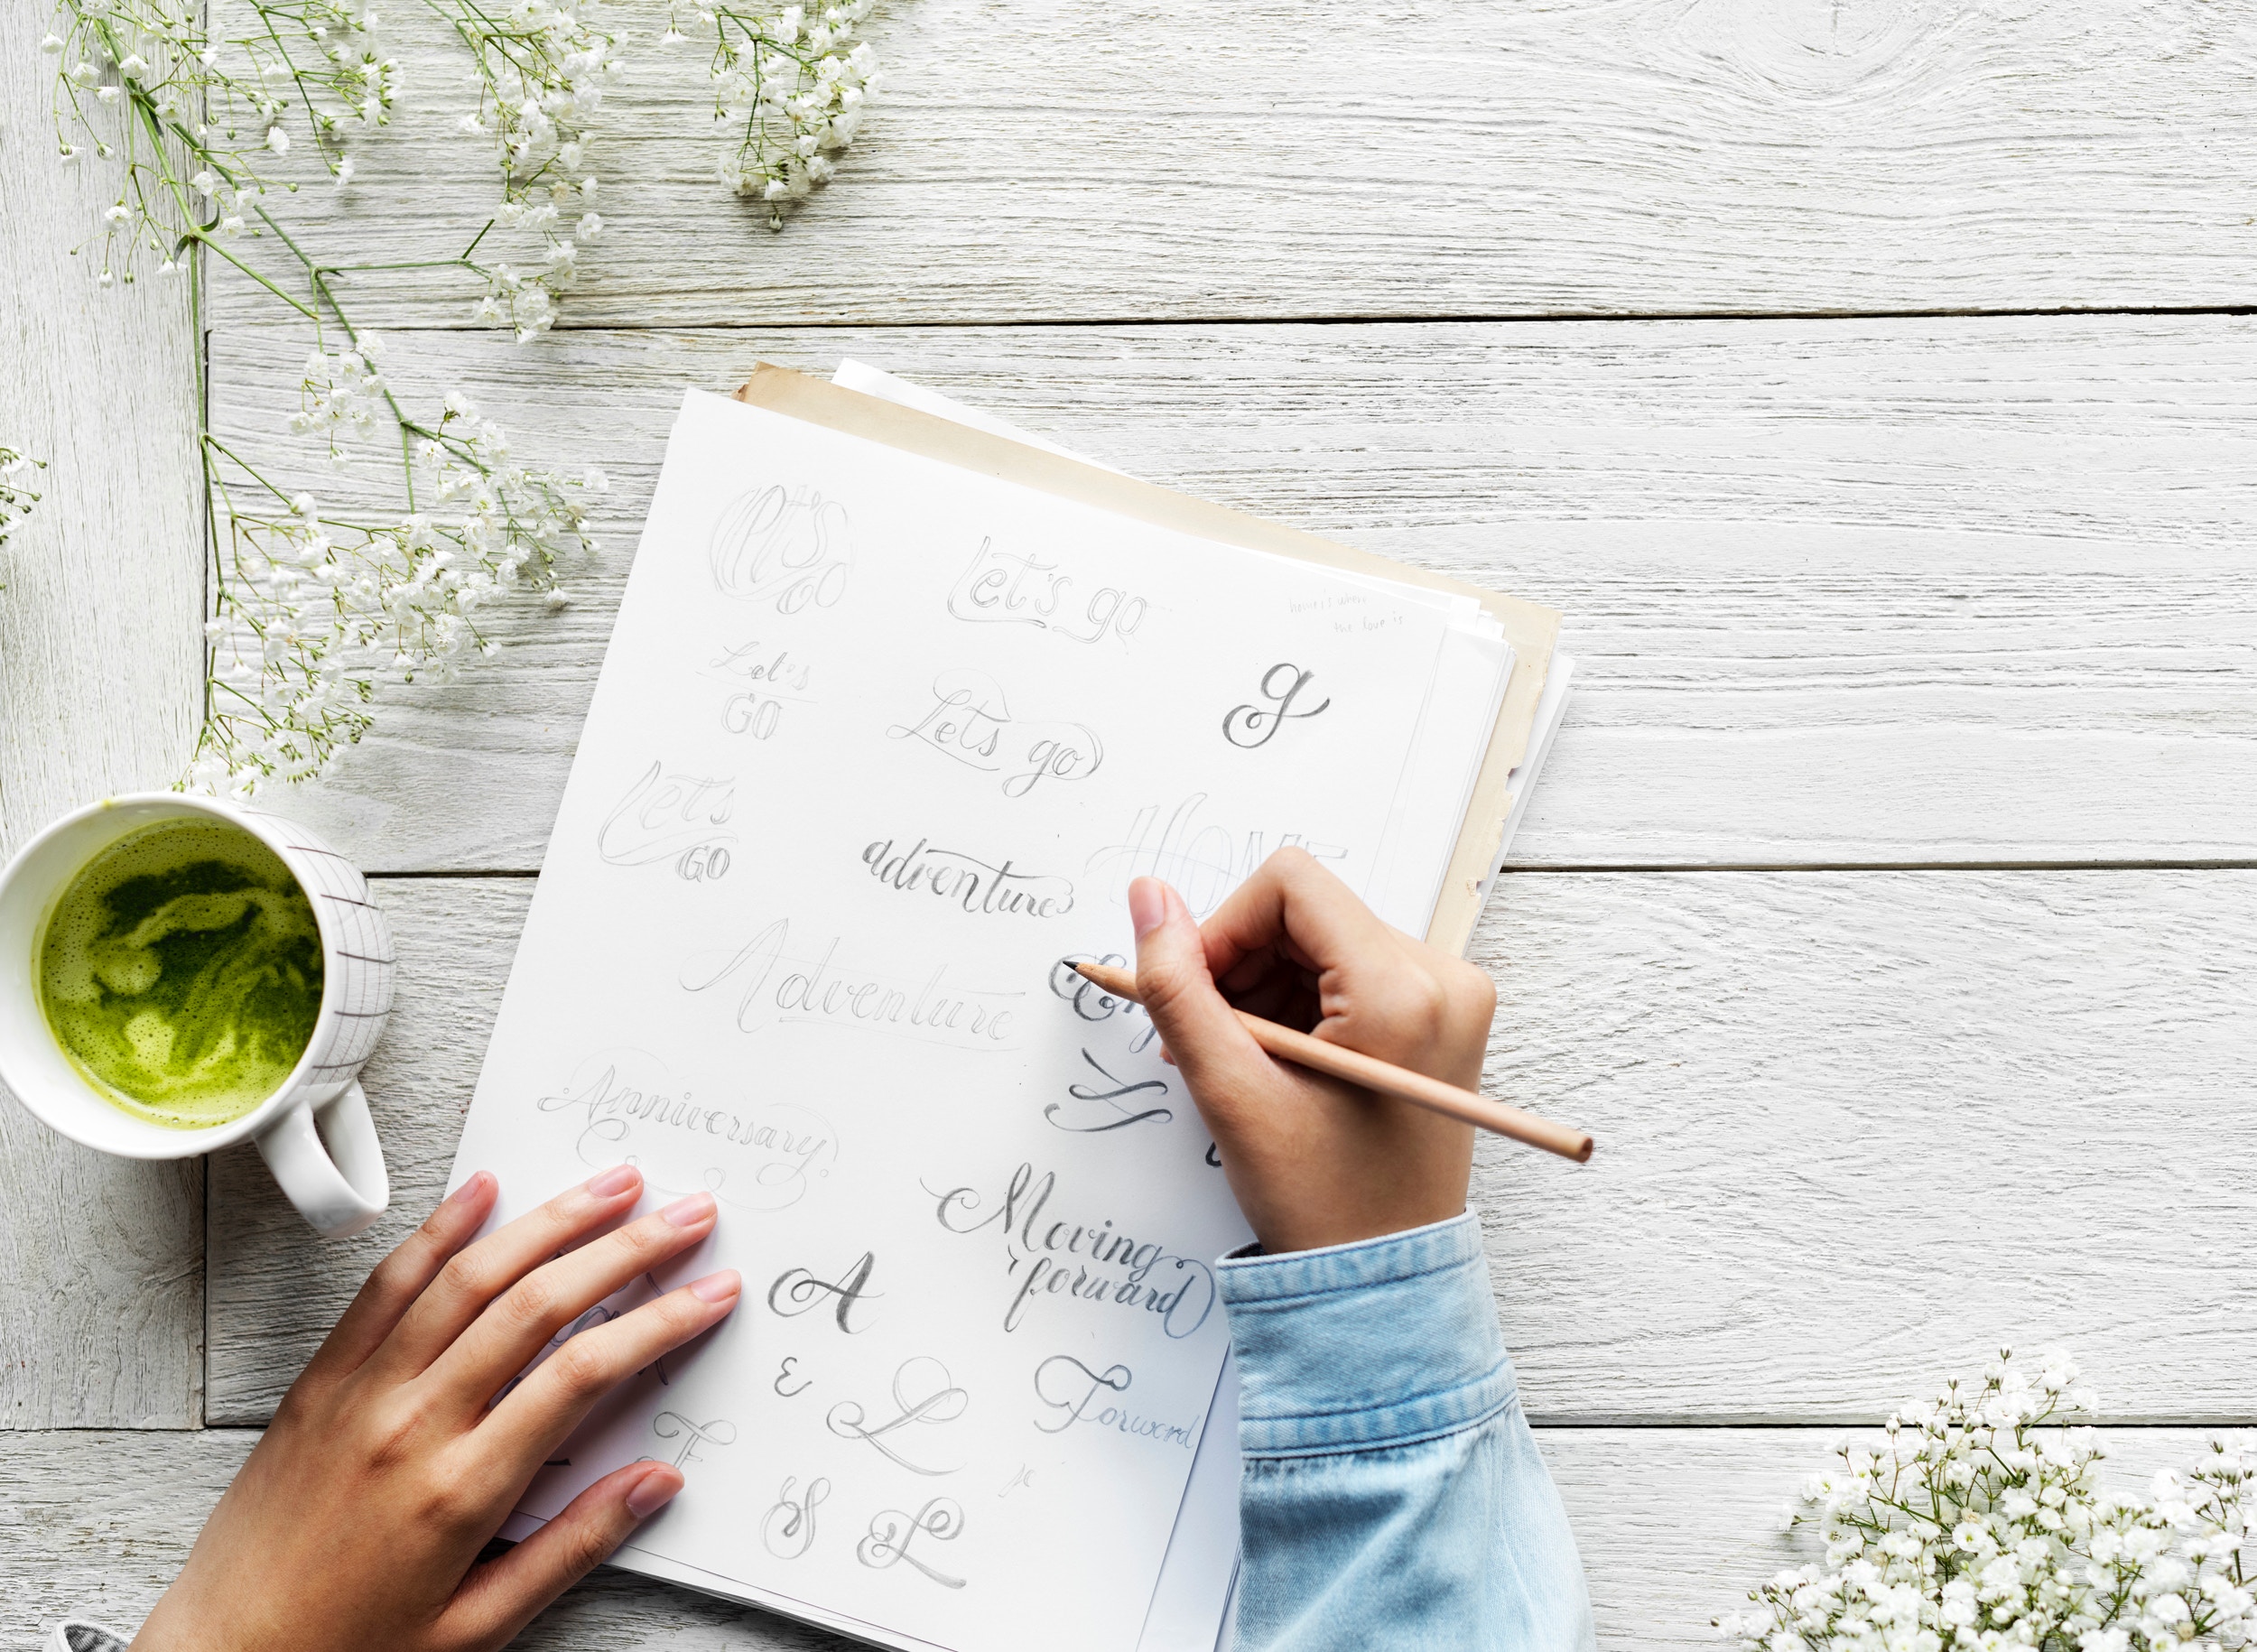 Let's
go
Let's go
home is where
the love is
Let's
GO
Lets go
g
Lets
GO
adventure
HOME
Adventure
Anniversary
Moving
forward
A
L
Forward
F
S L